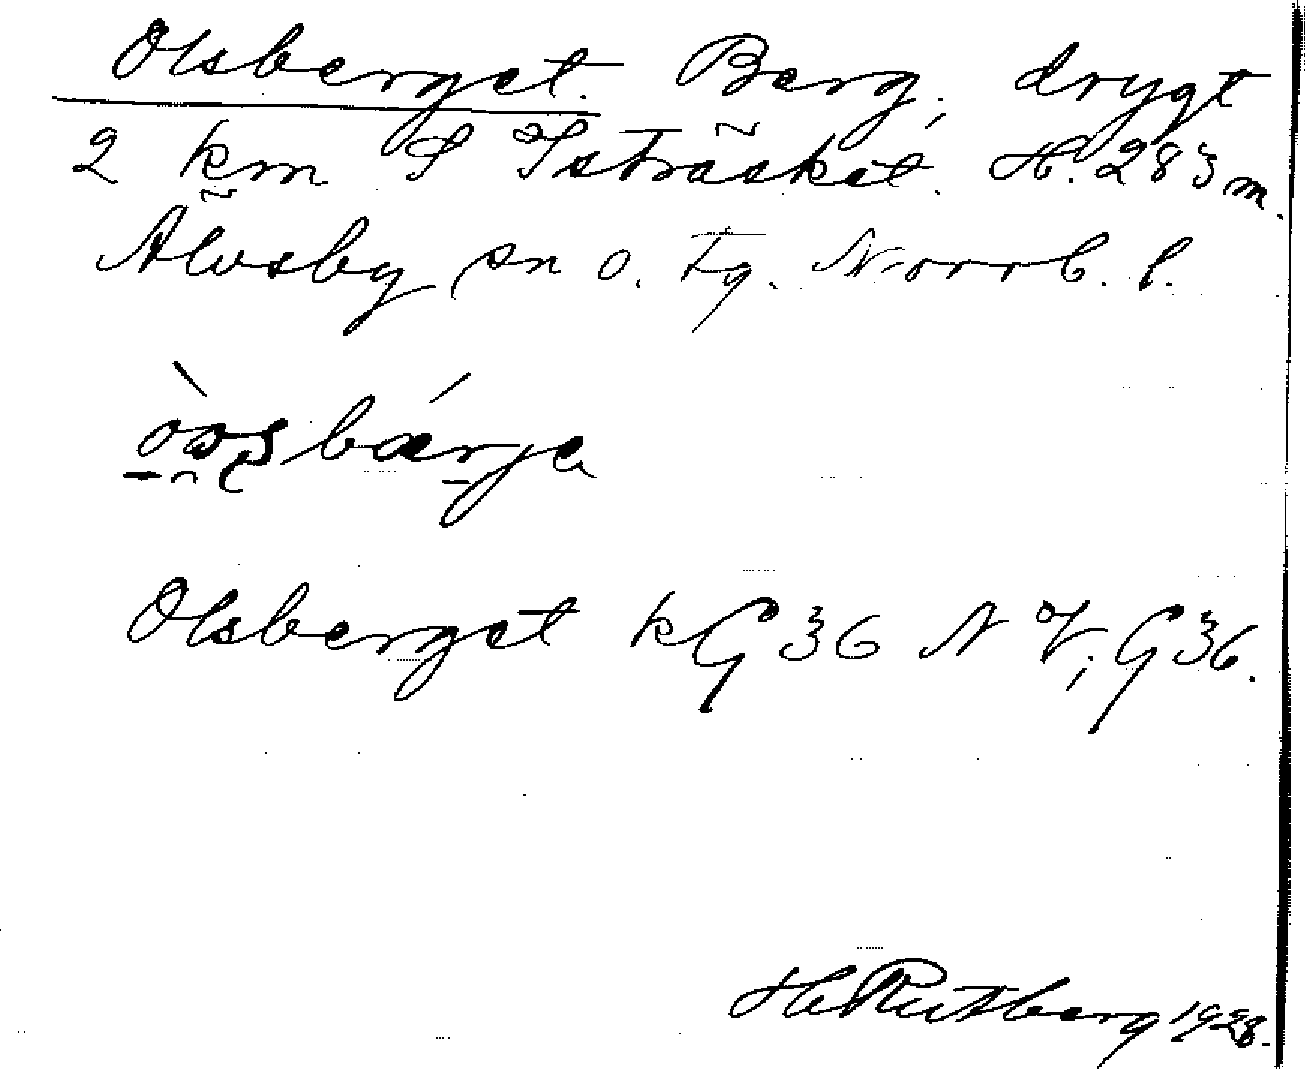 Olsberget. Berg, drygt
2 km S Isträsket. H. 283 m.
Älvsby sn o. tg. Norrb. l.
Olsberget kG 36 N V; G 36.
H Rutberg 1928.